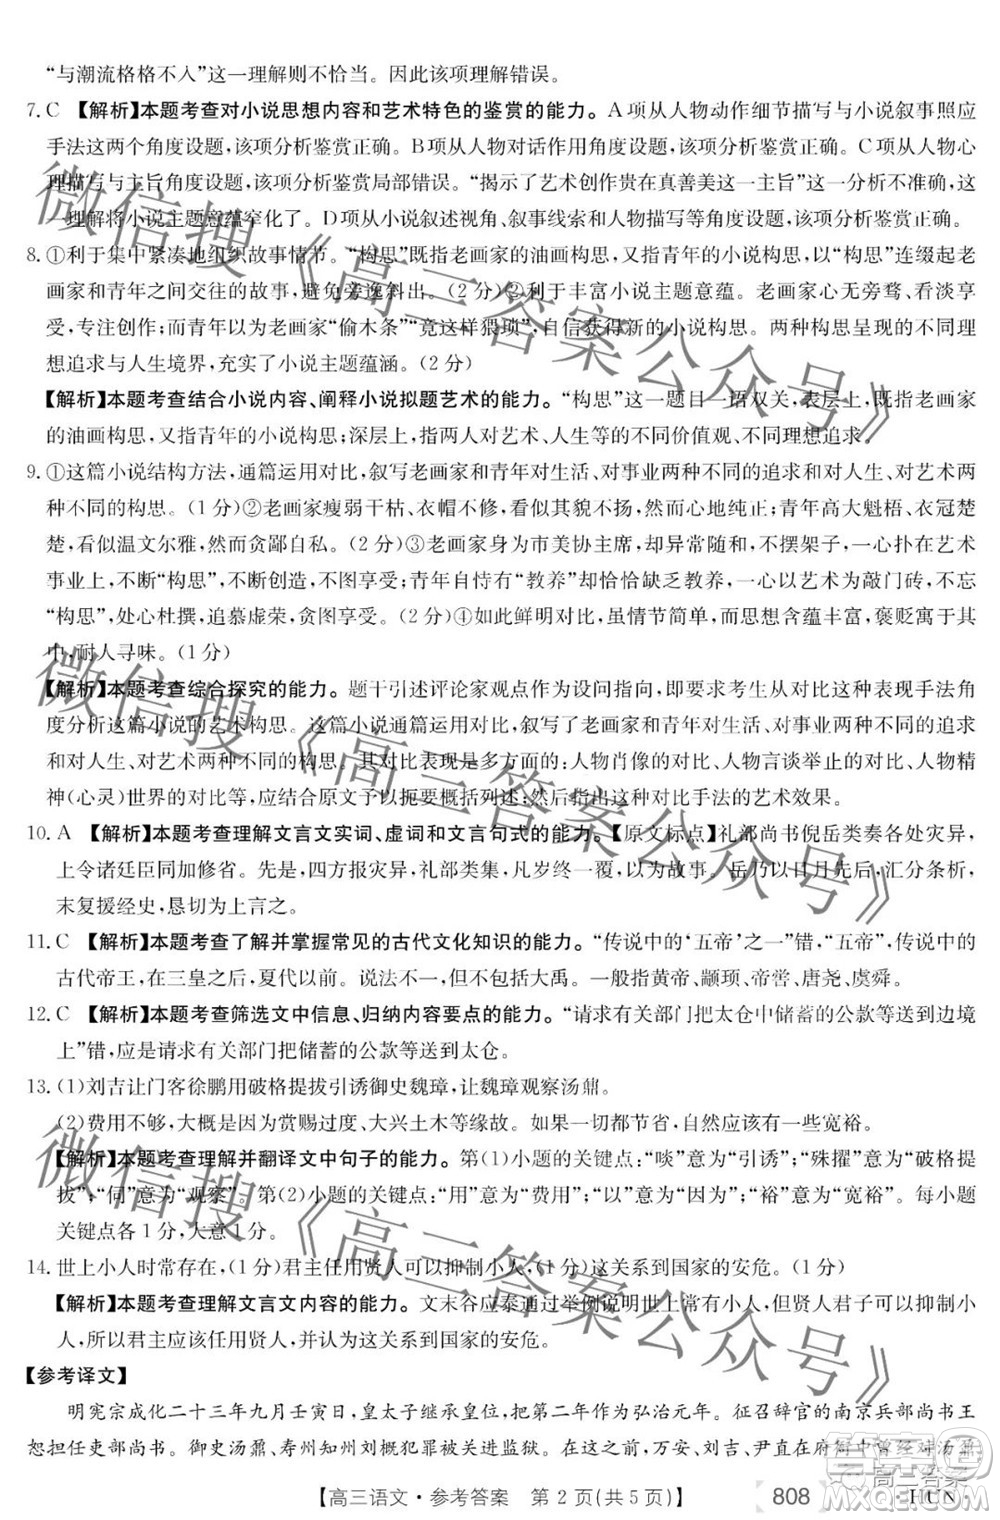 “与潮流格格不入”这一理解则不恰当。因此该项理解错误。
7. C 【解析】本题考查对小说思想内容和艺术特色的鉴赏的能力。A项从人物动作细节描写与小说叙事照应
手法这两个角度设题，该项分析鉴赏正确。B项从人物对话作用角度设题，该项分析鉴赏正确。C项从人物心
理描写与主旨角度设题，该项分析鉴赏局部错误。“揭示了艺术创作贵在真善美这一主旨”这一分析不准确，这
一理解将小说主题意蕴窄化了。D项从小说叙述视角、叙事线索和人物描写等角度设题，该项分析鉴赏正确。
8. ①利于集中紧凑地组织故事情节。“构思”既指老画家的油画构思，又指青年的小说构思。“构思”连缀起老
画家和青年之间交往的故事，避免旁逸斜出。(2分)②利于丰富小说主题意蕴。老画家心无旁骛、看淡享
受，与青年以老画家“偷木条”“竟这样猥琐”，自信获得新的小说构思。两种构思呈现的不同理
想追求与人生境界，充实了小说主题蕴涵。(2分)
【解析】本题考查结合小说内容、阐释小说拟题艺术的能力。“构思”这一题目一语双关，表层上，既指老画家
的油画构思，又指青年的小说构思；深层上，指两人对艺术、人生等的不同价值观、不同审美追求。
9. ①这篇小说结构方法，通篇运用对比，叙写老画家和青年对生活、对事业两种不同的追求和对人生、对艺术两
种不同的构思。(1分)②老画家瘦弱干枯、衣帽不修，看似无教养，实则正大光明；青年高大魁梧、衣冠楚
楚，看似温文尔雅，实则贪鄙自私。(2分)③老画家身为市美协主席，却不摆架子，一心扑在艺术
事业上，不断“构思”，不断创造，不图享受；青年自恃有“教养”却恰恰缺乏教养，一心以艺术为敲门砖，不断
“构思”，处心杜撰，追慕虚荣，贪图享受。(2分)④如此鲜明对比，虽情节简约，而意蕴丰富，褒贬寓于其
中，耐人寻味。(1分)
【解析】本题考查综合探究的能力。题干引述评论家观点作为设问指向，即要求考生从对比这种表现手法角
度分析这篇小说的艺术构思。这篇小说通篇运用对比，叙写了老画家和青年对生活、对事业两种不同的追求
和对人生、对艺术两种不同的构思。其对比表现是多方面的：人物肖像的对比，人物行为的对比，人物精
神(心灵)世界的对比等，应结合原文予以梳理、概括、阐述；然后，简要分析这种对比手法的艺术效果。
10. A 【解析】本题考查理解文言文实词、虚词和文言句式的能力。【原文标点】礼部尚书倪岳类奏各处灾异，
上令诸廷臣同加修省。先是，四方报灾异，礼部类集，凡岁终一覆，以为故事。岳乃以日月先后，汇分条析，
末复援经史，恳切上言之。
11. C 【解析】本题考查了解并掌握常见的古代文化知识的能力。“传说中的‘五帝’之一”错，“五帝”，传说中的
古代帝王，在三皇之后、夏代以前。说法不一，一般指黄帝、颛顼、帝喾、唐尧、虞舜。
12. C 【解析】本题考查筛选文中信息、归纳内容要点的能力。“请求有关部门把太仓中储蓄的公款等送到边境
上”错，应是请求有关部门把储蓄的公款等送到太仓。
13. (1)刘吉让门客徐鹏用破格提拔引诱御史魏璋，让魏璋观察汤鼐。
(2)费用不够，大概是因为赏赐过度、大兴土木等缘故。如果一切都节省，自然会有一些宽裕。
【解析】本题考查理解并翻译文中句子的能力。第(1)小题的关键点：“啖”意为“引诱”；“殊擢”意为“破格提
拔”；“伺”意为“观察”。第(2)小题的关键点：“用”意为“费用”；“以”意为“因为”；“裕”意为“宽裕”。每小题
关键点各1分，大意1分。
14. 世上小人时常存在，(1分)君主任用贤人可以抑制小人，(1分)这关系到国家的安危。(1分)
【解析】本题考查理解文言文内容的能力。文末谷应泰通过举例说明世上常有小人，但贤人君子可以抑制小
人，所以君主应该任用贤人，并认为这关系到国家的安危。
【参考译文】
明宪宗成化二十三年九月壬寅日，皇太子继承皇位，把第二年作为弘治元年。征召辞官的南京兵部尚书王
恕担任吏部尚书。御史汤鼐、寿州知州刘概犯罪被关进监狱。在这之前，万安、刘吉、尹直在府衙中曾经对汤鼐
【高三语文·参考答案 第2页(共5页)】 808 ·HCN·
微信搜《高三答案公众号》
微信搜《高三答案公众号》
微信搜《高三答案公众号》
高三答案